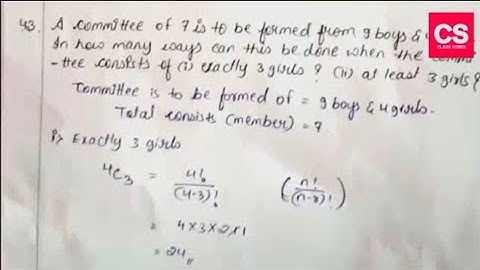 CS
CLASS NOTES
43. A committee of 7 is to be formed from 9 boys &
In how many ways can this be done when the
-ttee consists of (i) exactly 3 girls? (ii) at least 3 girls?
Committee is to be formed of = 9 boys & 4 girls.
Total consists (member) = 7
i) Exactly 3 girls
4C3 = 4! / (4-3)! (n! / (n-r)!)
= 4x3x2x1
= 24,,